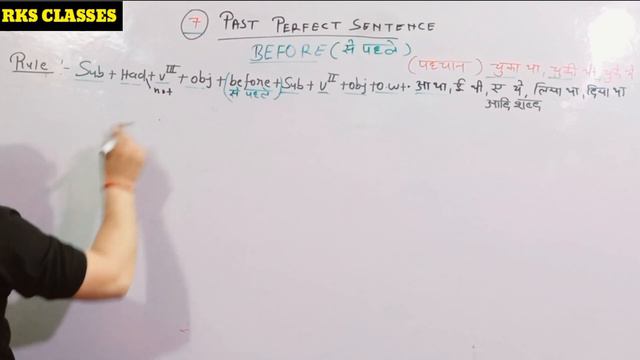 RKS CLASSES
7 PAST PERFECT SENTENCE
BEFORE (से पहले)
(पहचान) चुका था, चुकी थी, चुके थे
Rule :- Sub + Had + V III + obj + (before + Sub + V II + obj + o.w + . आ था, ई थी, ए थे, लिया था, दिया था
not (से पहले) आदि शब्द